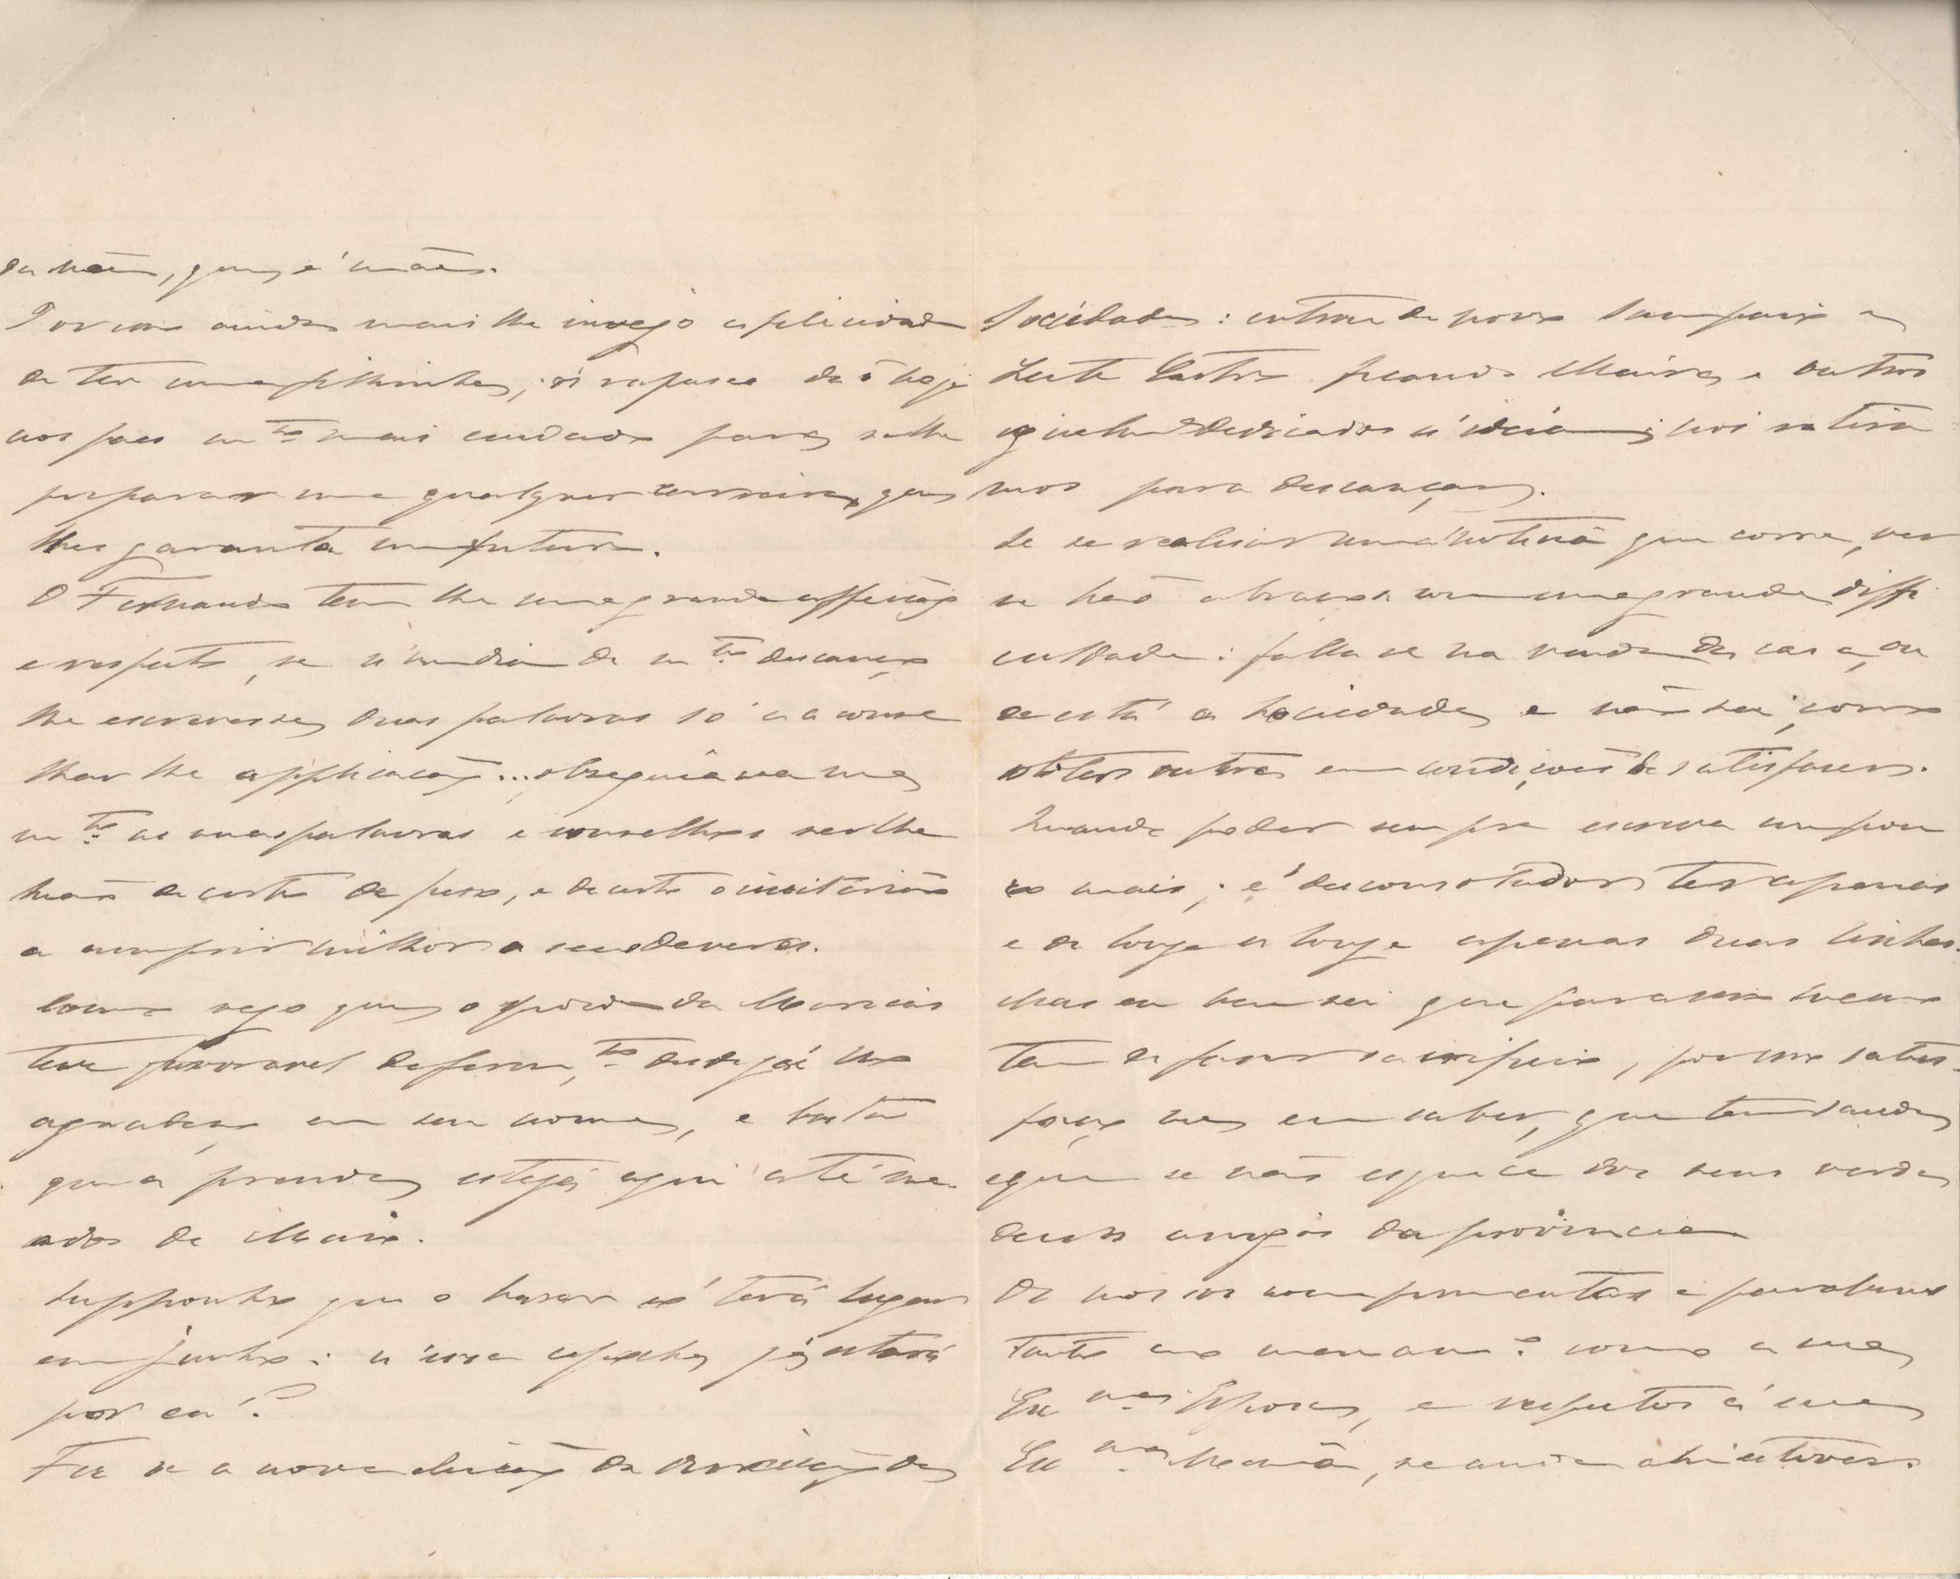 da mãe, que é mãe.
Por isso ainda mais lhe invejo a felicidade
de ter uma filhinha; os rapazes dão hoje
aos paes mtos mais cuidados para se lhe
preparar uma qualquer carreira, que
lhes garanta um futuro.
O Fernando tem lhe uma grande affeição
e respeito, se n'um dia de mto descanço
lhe escrevesse duas palavras só a aconse
lhar lhe applicação... obsequiava me
mto as suas palavras e conselhos ser lhe
hião de certo de peso, e de certo o incitarião
a cumprir milhor os seus deveres.
Como vejo que o pedido da
teve favoravel deferimto, desde já lhe
agradeço em seu nome, e basta
que a prenda esteja aqui até me
ados de Maio.
Supponho que o bazar só terá lugar
em junho: n'essa epocha já estará
por cá?
Fez se a nova eleição da direcção da
Sociedade: entrou de novo Sampaio e
Leite Castro ficando Meira e outros
egualmte dedicados á ideia; nós retira
mos para descançar.
Se se realisar uma noticia que corre, ver
se hão a braços com uma grande diffi
culdade: falla se na venda da casa, on
de está a Sociedade, e não sei como
obter outra em condições de satisfazer.
Quando poder sempre escreva um pou
co mais; é desconsolador ter apenas
e de longe a longe apenas duas linhas.
Mas eu bem sei que para isso mesmo
tem de fazer sacrificio, por isso satis
faço me em saber, que tem saude
e que se não esquece dos seus verda
deiros amigos da provincia
De nós os comprimentos e parabens
tanto ao como a sua
Exma Esposa, e respeitos á sua
Exma Mamã, se ainda ahi estiver.